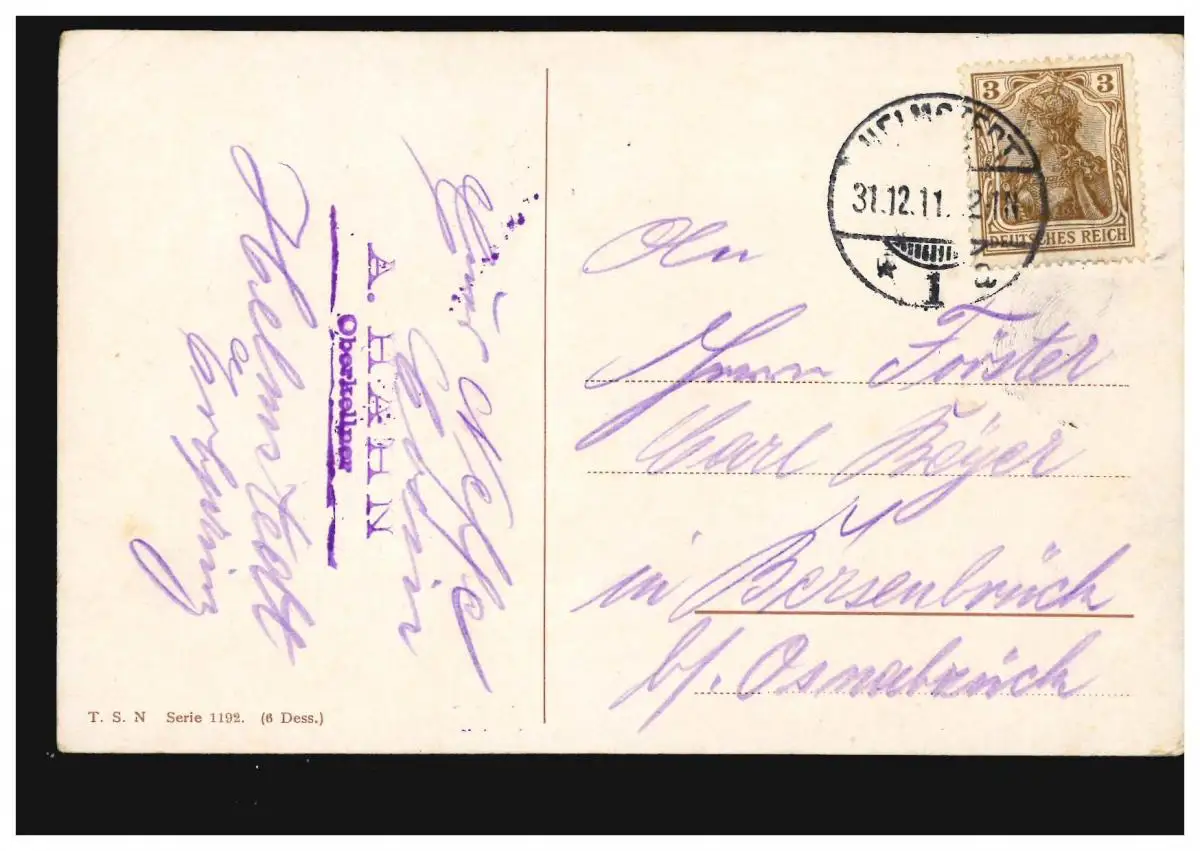 3 3
DEUTSCHES REICH
HELMSTEDT
31.12.11. 2-1N
* 1 a
An
Herrn Förster
Carl Beyer
in Bersenbrück
b/. Osnabrück
Neffe
A. HAHN
Oberkellner
Helmstedt
T. S. N Serie 1192. (6 Dess.)